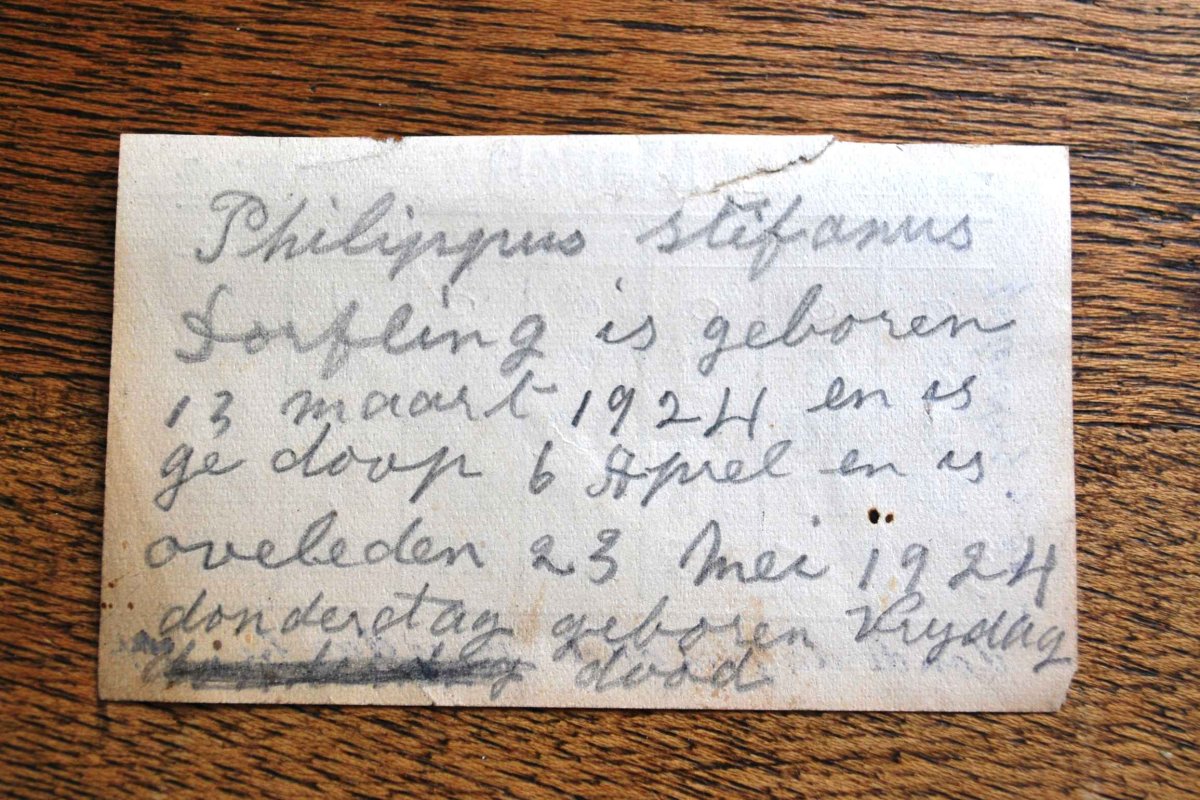 Philippus stefanus
Dorfling is geboren
13 maart 1924 en is
ge doop 6 Aprel en is
oveleden 23 Mei 1924
donderstag geboren Vrydag
dood